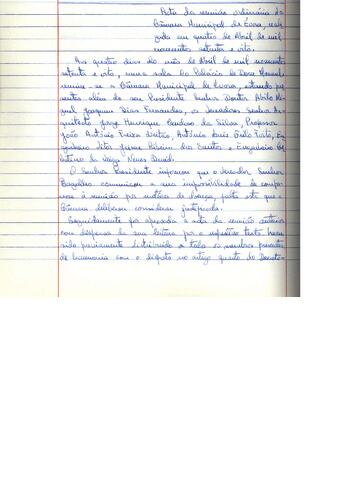 Acta da reunião ordinária da
Câmara Municipal de Évora, reali
zada em quatro de Abril de mil
novecentos setenta e oito.
Aos quatro dias do mês de Abril de mil novecentos
setenta e oito, numa sala do Palácio de Dom Manuel
reuniu-se a Câmara Municipal de Évora, estando pre
sentes além do seu Presidente Senhor Doutor Abílio Mi
guel Joaquim Dias Fernandes, os Vereadores Senhor Ar
quitecto Jorge Henrique da Silva, Professor
João António Santos, António Luís Porto, En
genheiro Vítor Jaime Ribeiro dos Santos e Engenheiro
da Neves David.
O Senhor Presidente informou que o Vereador Senhor
Bagulho comunicou a sua impossibilidade de compa
recer à reunião por motivo de doença, falta esta que a
Câmara deliberou considerar justificada.
Seguidamente foi aprovada a acta da reunião anterior
com dispensa da sua leitura por o respectivo texto haver
sido previamente distribuído a todos os membros presentes
de harmonia com o disposto no artigo quarto do Decreto-